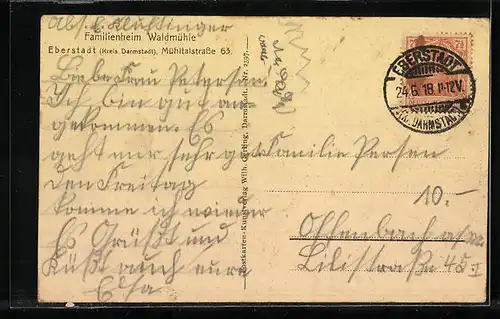 Abs. E. Klutinger
Familienheim Waldmühle
Eberstadt (Kreis Darmstadt), Mühltalstraße 63.
Liebe Frau Petersen.
Ich bin gut an-
gekommen. Es
geht mir sehr gut
den Freitag
komme ich wieder
Es Grüßt und
Küßt auch eure
Elsa
Postkarten-Kunstverlag Wilh. Gerling, Darmstadt. Nr. 2397.
7½
EBERSTADT
24.6.18.11-12V.
(Kr. DARMSTADT)
Familie Persen
10.-
Offenbach a/M
Lilistraße 45 I